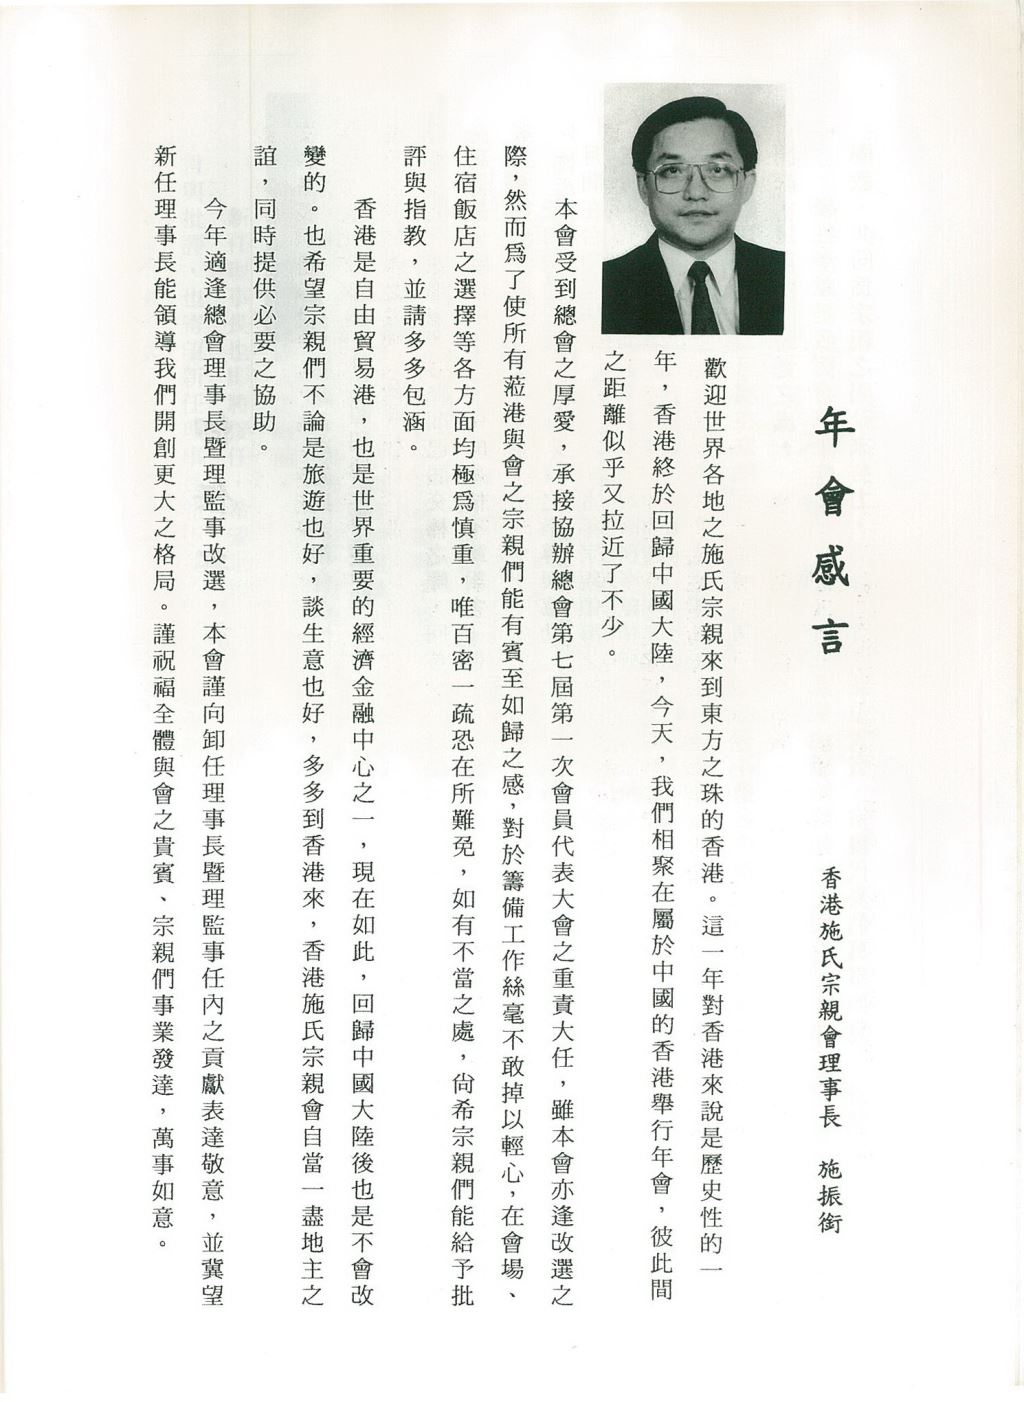 年會感言
香港施氏宗親會理事長　施振銜
歡迎世界各地之施氏宗親來到東方之珠的香港。這一年對香港來說是歷史性的一
年，香港終於回歸中國大陸，今天，我們相聚在屬於中國的香港舉行年會，彼此間
之距離似乎又拉近了不少。
本會受到總會之厚愛，承接協辦總會第七屆第一次會員代表大會之重責大任，雖本會亦逢改選之
際，然而爲了使所有蒞港與會之宗親們能有賓至如歸之感，對於籌備工作絲毫不敢掉以輕心，在會場、
住宿飯店之選擇等各方面均極爲慎重，唯百密一疏恐在所難免，如有不當之處，尙希宗親們能給予批
評與指教，並請多多包涵。
香港是自由貿易港，也是世界重要的經濟金融中心之一，現在如此，回歸中國大陸後也是不會改
變的。也希望宗親們不論是旅遊也好，談生意也好，多多到香港來，香港施氏宗親會自當一盡地主之
誼，同時提供必要之協助。
今年適逢總會理事長暨理監事改選，本會謹向卸任理事長暨理監事任內之貢獻表達敬意，並冀望
新任理事長能領導我們開創更大之格局。謹祝福全體與會之貴賓、宗親們事業發達，萬事如意。